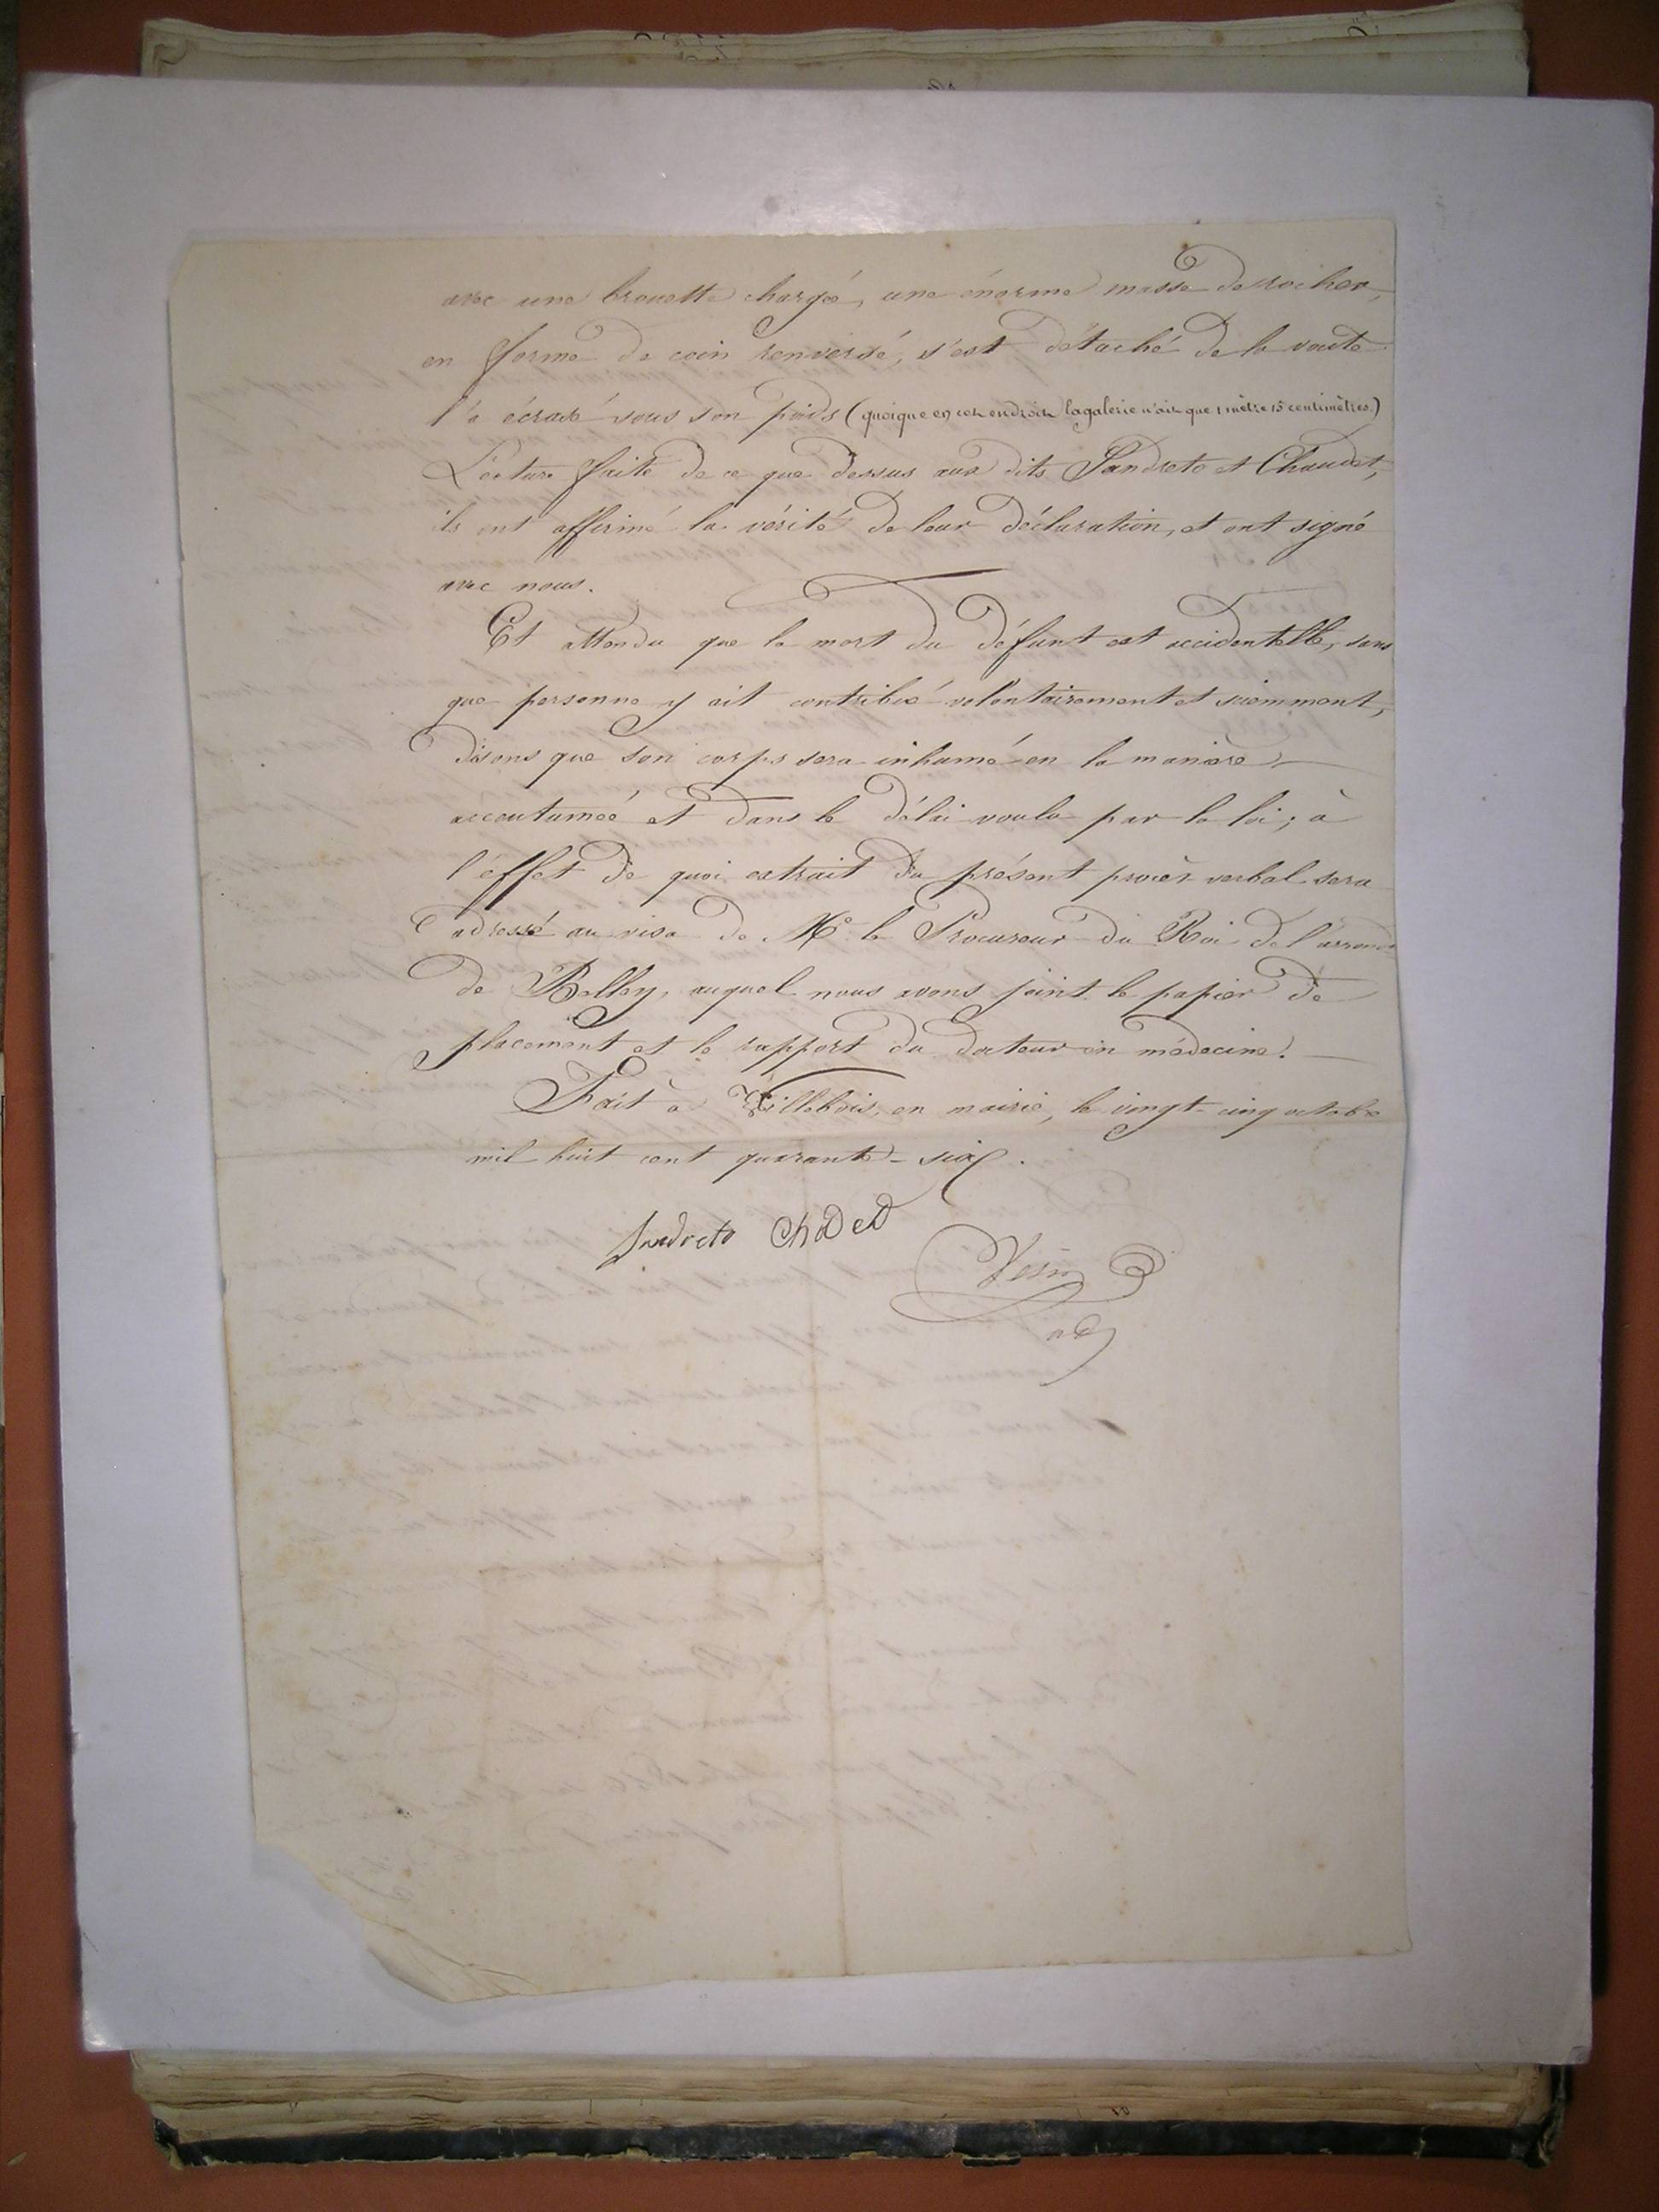 avec une brouette chargée, une énorme masse de rocher,
en forme de coin renversé, s'est détaché de la voute
l'a écrasé sous son poids (quoique en cet endroit la galerie n'ait que 1 mètre 15 centimètres.)
Lecture faite de ce que dessus aux dits Sandreto et Chaudet,
ils ont affirmé la vérité de leur déclaration, et ont signé
avec nous.
Et attendu que la mort du défunt est accidentelle, sans
que personne y ait contribué volontairement et sciemment,
disons que son corps sera inhumé en la manière
accoutumée et dans le délai voulu par la loi; à
l'éffet de quoi extrait du présent procès verbal sera
adressé au visa de Mr le Procureur du Roi de l'arrondt
de Belley, auquel nous avons joint le papier de
placement et le rapport du docteur en médecine.
Fait à Villebois, en mairie, le vingt-cinq octobre
mil huit cent quarante-six.
Sandreto Choded
adj